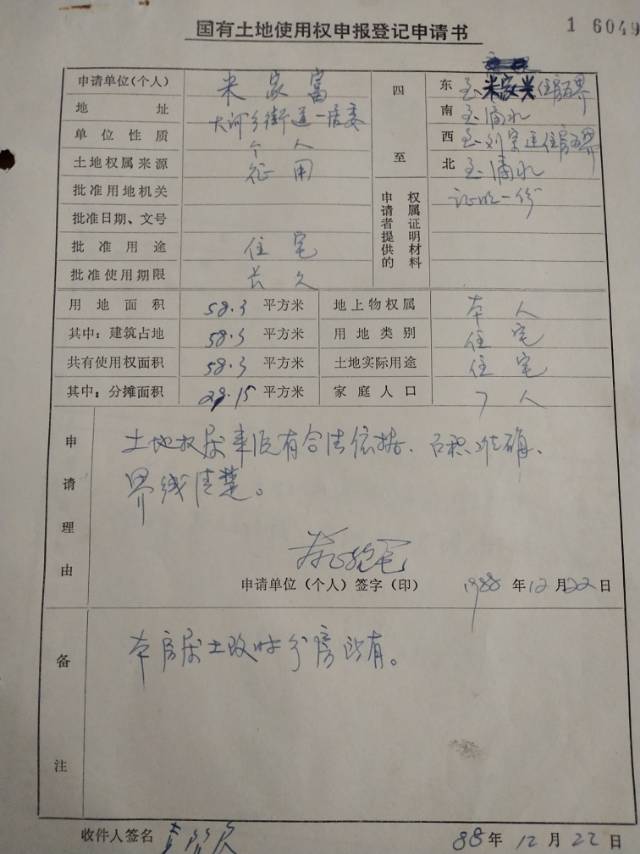 国有土地使用权申报登记申请书
1 6049
申请单位(个人) 米家富
地址 大河乡街道一居委
单位性质 个人
土地权属来源 征用
批准用地机关
批准日期、文号
批准用途 住宅
批准使用期限 长久
四至
东 至米家兴住房为界
南 至滴水
西 至刘宗连住房为界
北 至滴水
申请者提供的权属证明材料 证明一份
用地面积 58.3 平方米 地上物权属 本人
其中：建筑占地 58.3 平方米 用地类别 住宅
共有使用权面积 58.3 平方米 土地实际用途 住宅
其中：分摊面积 29.15 平方米 家庭人口 7人
申请理由
土地权属来源有合法依据、面积准确、
界线清楚。
申请单位（个人）签字（印） 1988年12月22日
备注
本房屋土改时分房所有。
收件人签名
88年12月22日